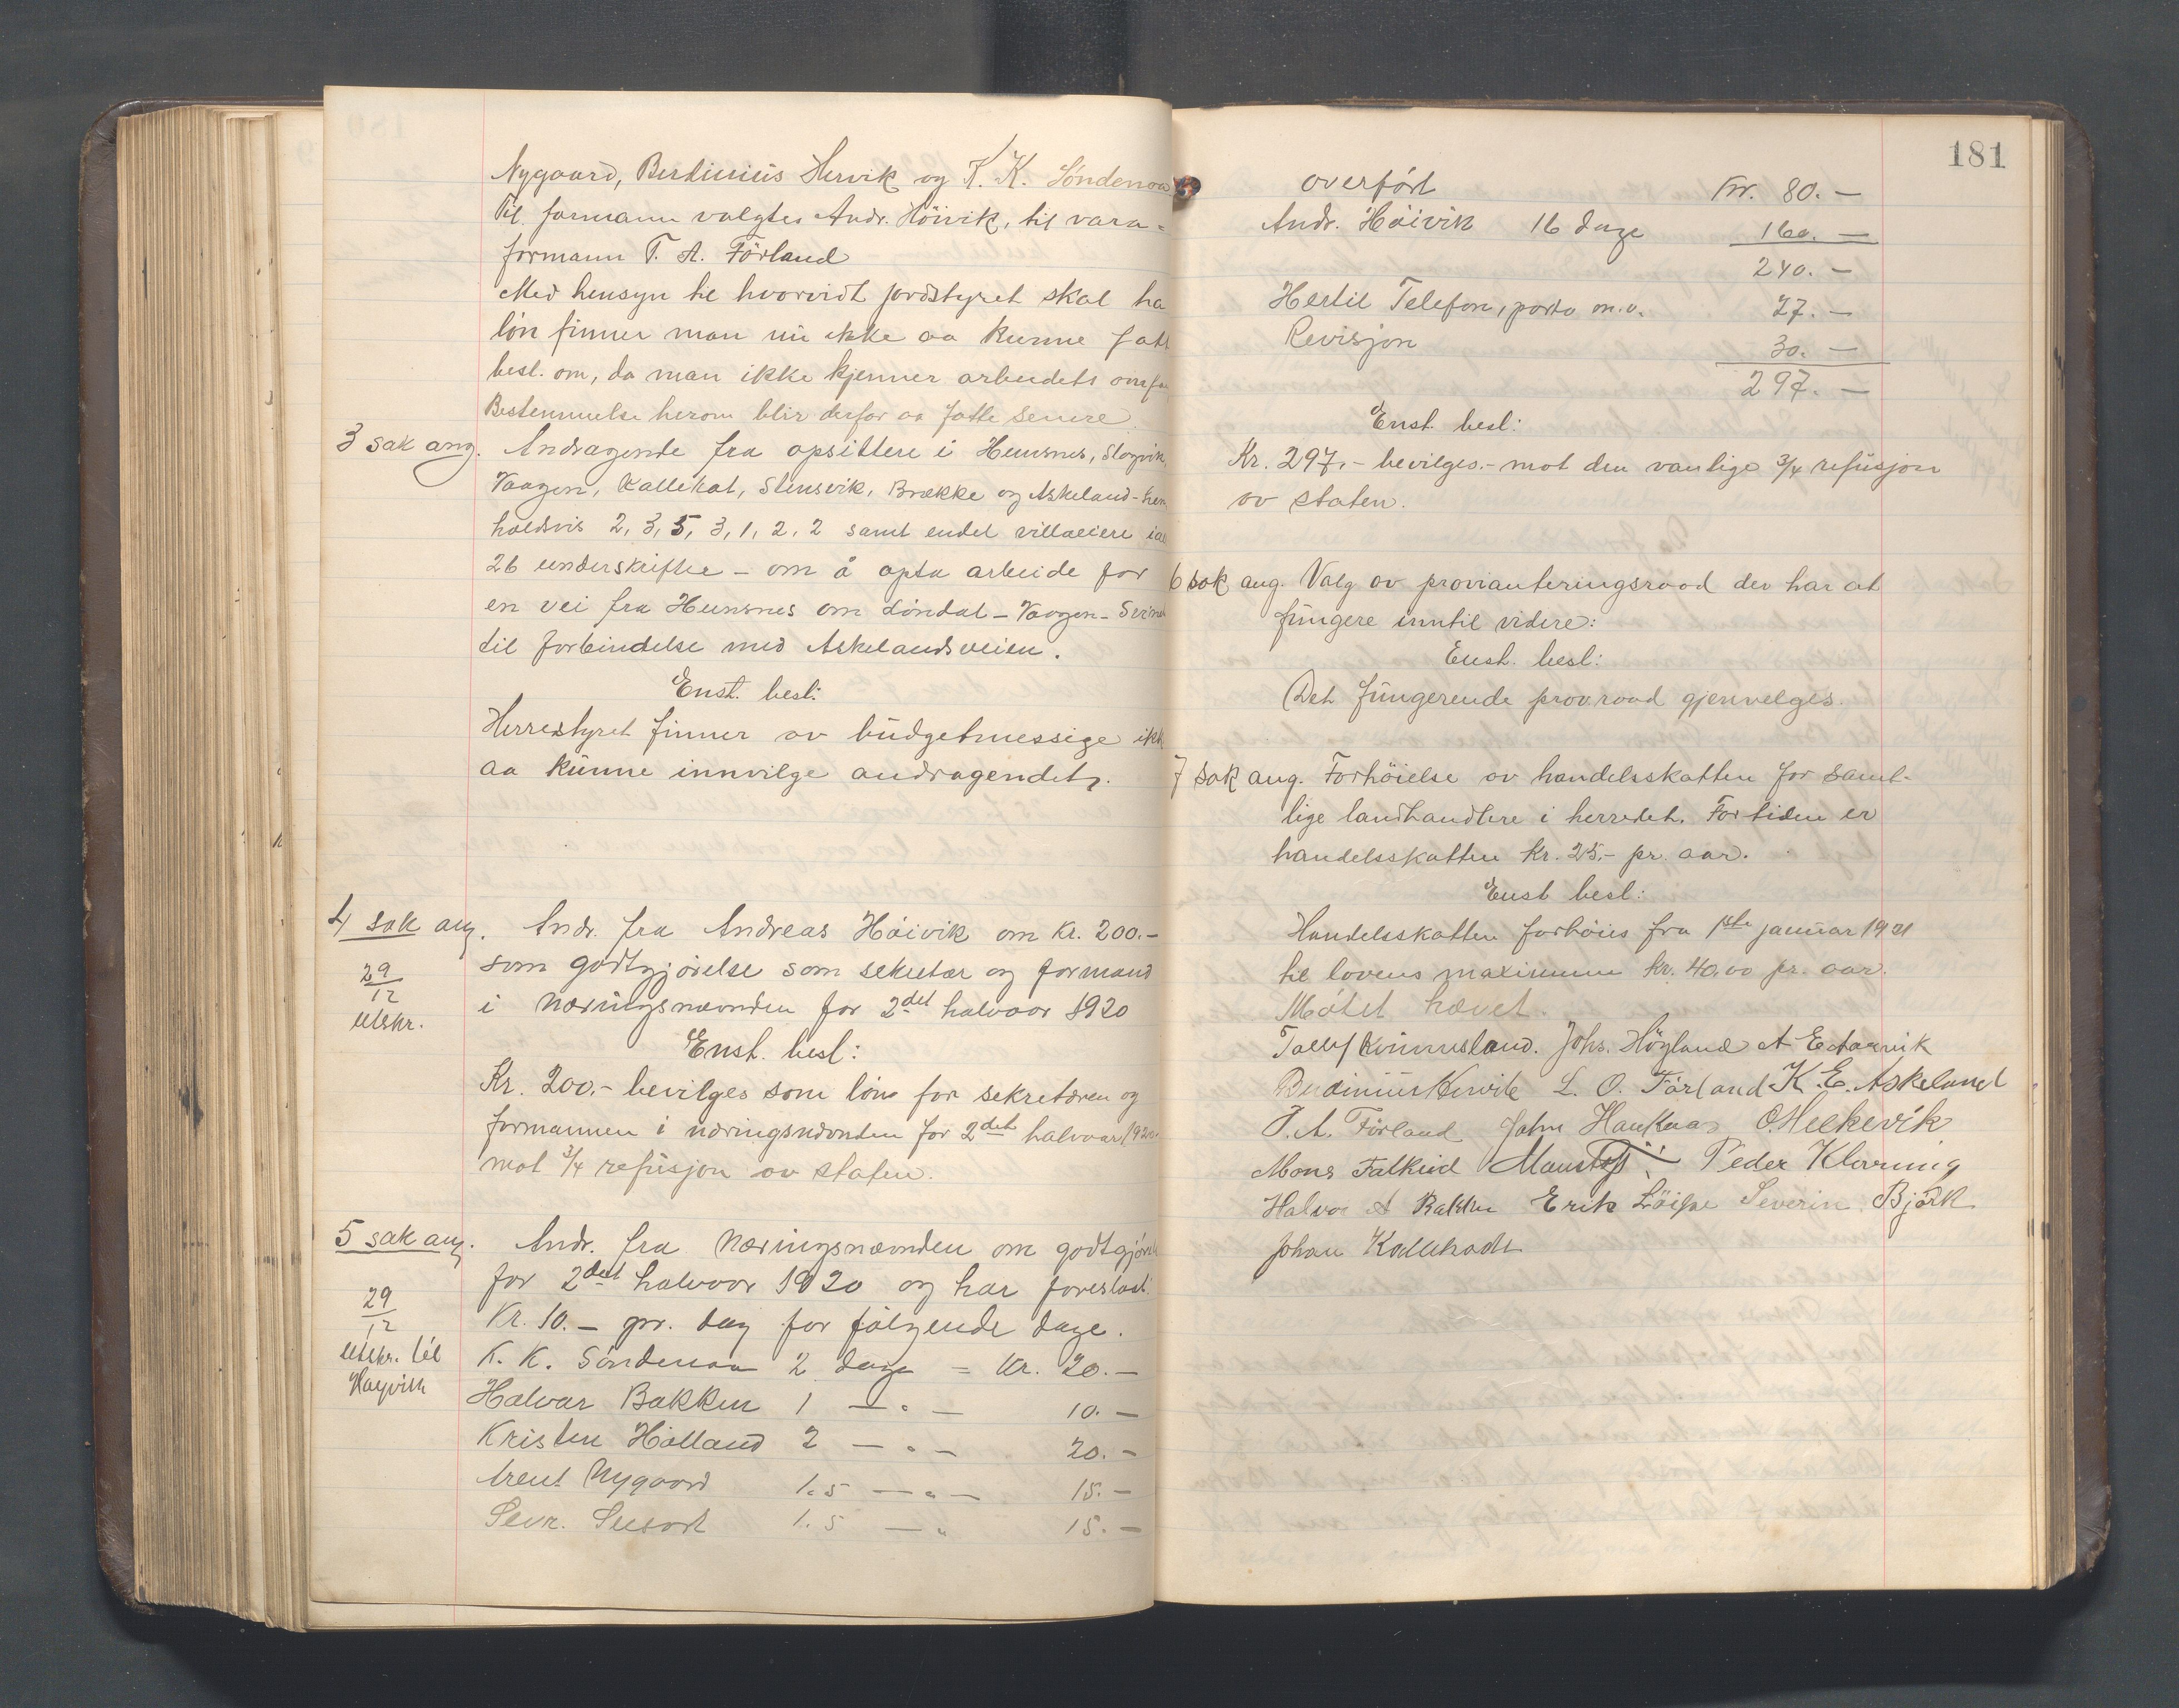 Nygaard, Berdinius Hervik og K. K. Söndenaa
Til formann valgtes Andr. Höivik, til vara-
formann T. A. Förland
Med hensyn til hvorvidt jordstyret skal ha
lön finner man nu ikke aa kunne fatt
besl. om, da man ikke kjenner arbeidets omfa
Bestemmelse herom blir derfor aa fatte senere.
3 sak ang. Andragende fra opsittere i Hemsnes, Slogvik,
Vaagen, Kallekot, Stensvik, Brække og Askeland - hen
holdsvis 2, 3, 5, 3, 1, 2, 2 samt endel villaeiere ial
26 underskrifter - om å opta arbeide for
en vei fra Hemsnes om Löndal - Vaagen -
til forbindelse med Askelandsveien.
Enst. besl:
Herrestyret finner av büdgetmessige ikk
aa künne innvilge andragendet.
4 sak ang. Andr. fra Andreas Höivik om kr. 200.-
29/12
utskr.
som godtgjörelse som sekretær og formand
i Næringsnævnden for 2det halvaar 1920
Enst. besl:
Kr. 200,- bevilges som lön for sekretæren og
formannen i næringsnævnden for 2det halvaar 1920
mot 3/4 refüsjon av staten.
5 sak ang. Andr. fra Næringsnævnden om godtgjörel
29/12
utskr. til
Høyvik
for 2det halvaar 1920 og har foreslaat
Kr. 10.- pr. dag for fölgende dage.
K. K. Söndenaa 2 dage = Kr. 20.-
Halvar Bakken 1 - " - 10.-
Kristen Hölland 2 - " - 20.-
Arent Nygaard 1.5 - " - 15.-
Sevr. Susort 1.5 - " 15.-
181
overfört Kr. 80.-
Andr. Höivik 16 dage 160.-
240.-
Hertil Telefon, porto m.v. 27.-
Revisjon 30.-
297.-
Enst. besl:
Kr. 297,- bevilges.- mot den vanlige 3/4 refüsjon
av staten.
6 sak ang. Valg av provianteringsraad der har at
füngere inntil videre:
Enst. besl:
Det füngerende provraad gjenvelges.
7 sak ang. Forhöielse av handelsskatten for samt-
lige landhandlere i herredet. For tiden er
handelsskatten kr. 25,- pr. aar.
Enst besl:
Handelsskatten forhöies fra 1ste januar 1921
til lovens maximum kr. 40,00 pr. aar.
Mötet hævet.
Tollef Kinnusland. Johs. Höyland A E Aarvik
Berdinius Hervik L. O. Förland K. E. Askeland
T. A. Förland John Haukaas O. Melkevik
Mons Falkeid Peder Klovning
Halvor A Bakken Erik Severin Björk
Johan Kallekodt